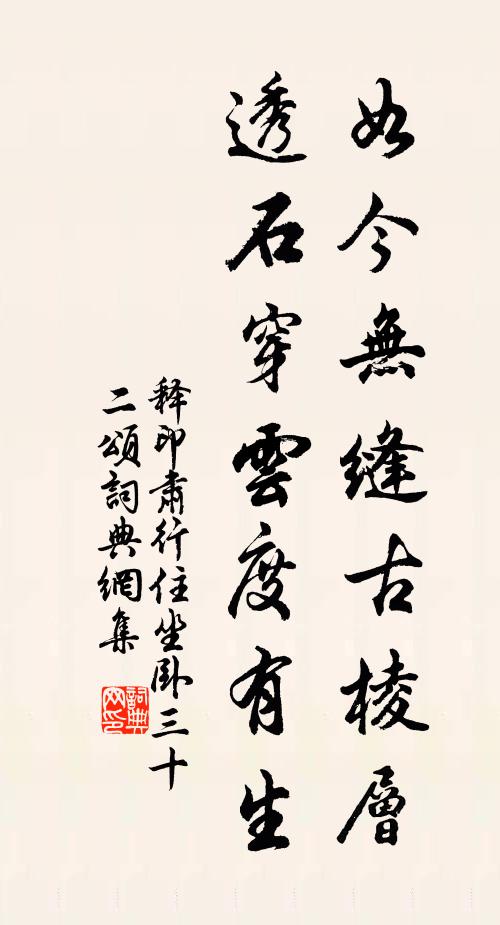 如今無縫古棱層
透石穿雲度有生
释印肅行住坐卧三十
二頌詞典網集
詞典网印